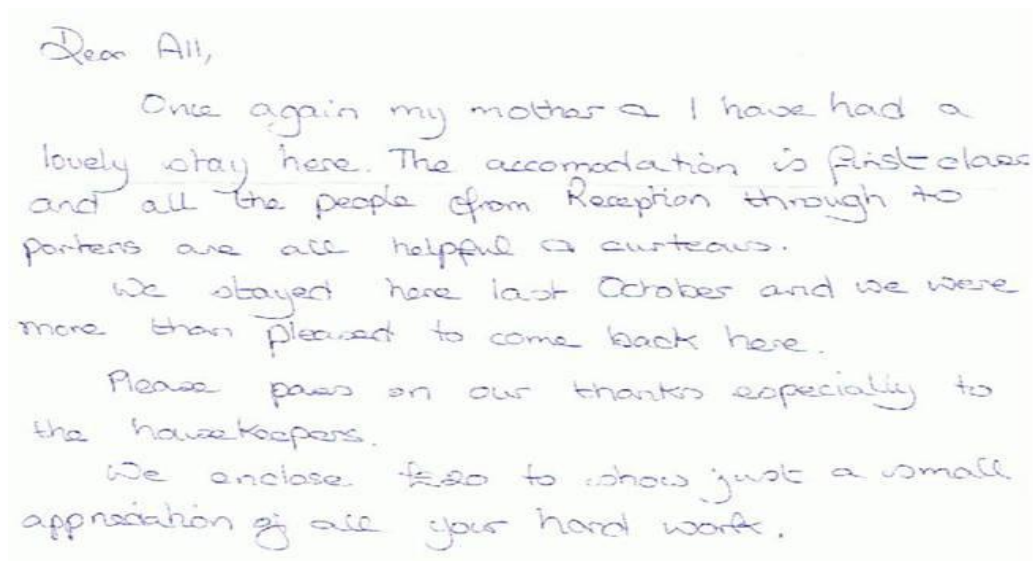 Dear All,
Once again my mother & I have had a
lovely stay here. The accomodation is first class
and all the people from Reception through to
porters are all helpful & curteous.
We stayed here last October and we were
more than pleased to come back here.
Please pass on our thanks especially to
the housekeepers.
We enclose £20 to show just a small
appreciation of all your hard work.